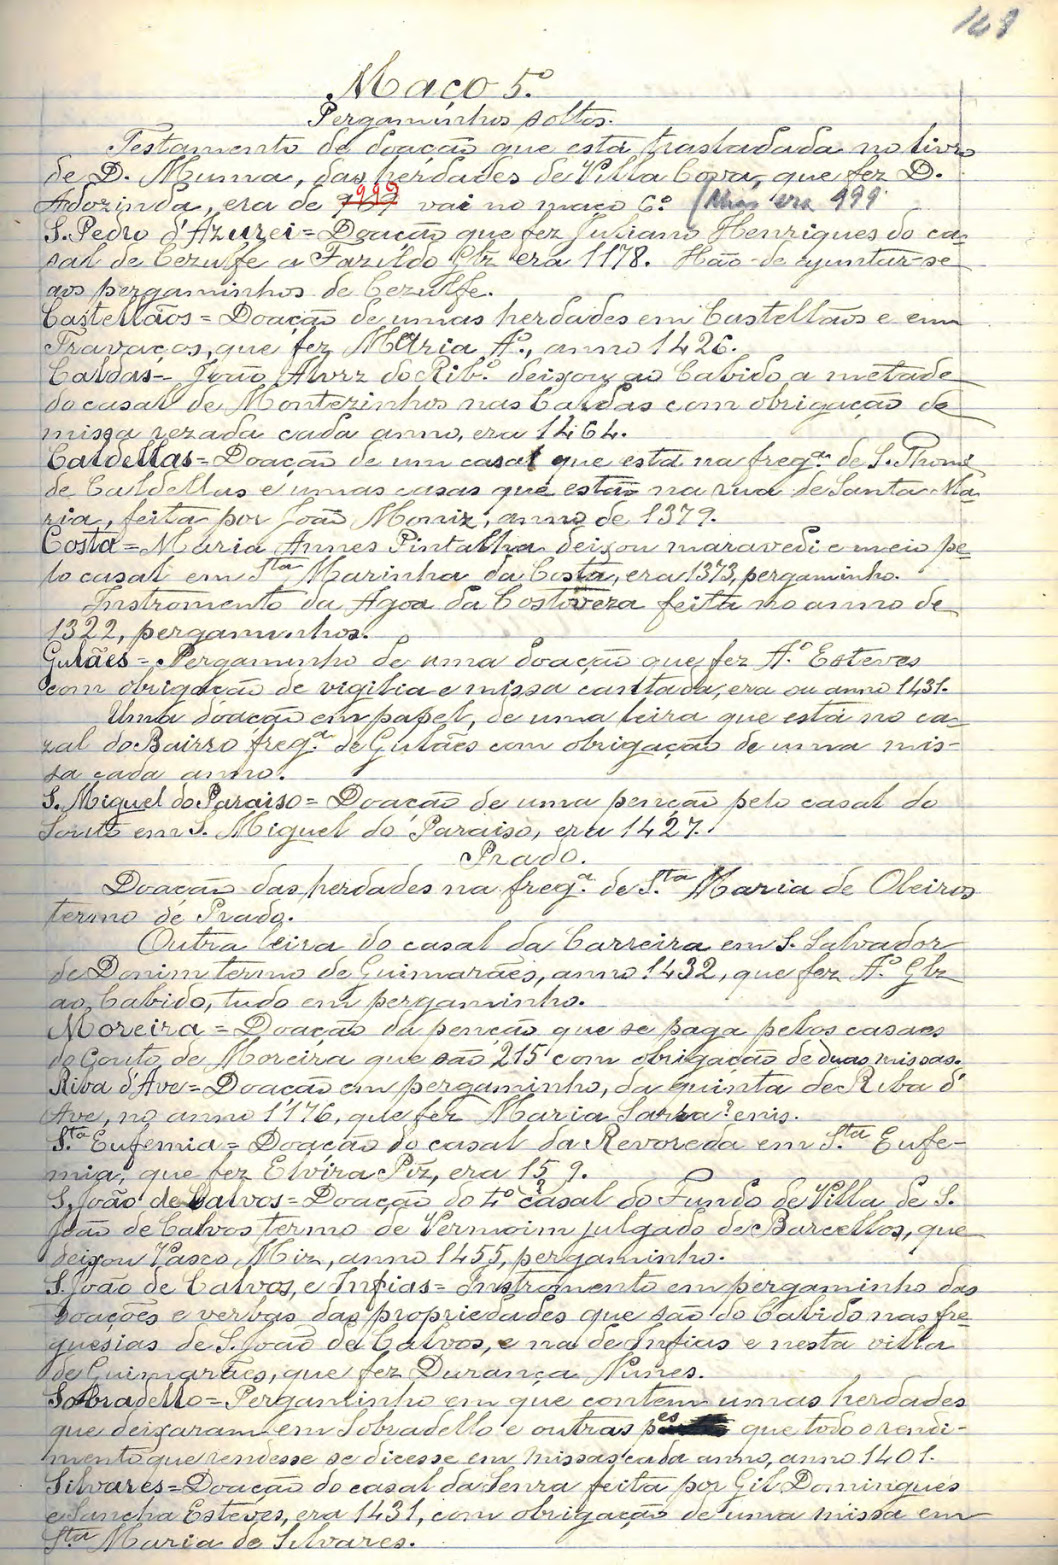 Maço 5.º
Pergaminhos soltos.
Testamento de doação que está trasladada no livro
de D. Muma, das herdades de Villa Cova, que fez D.
Adozinda, era de 999 vai no maço 6.º (Mas era 999
S. Pedro d'Azurei = Doação que fez Juliano Henriques do ca-
sal de Cezulfe a Fazildo Glz era 1178. Hão-de ajuntar-se
aos pergaminhos de Cezulfe.
Castellãos = Doação de umas herdades em Castellãos e em
Travaços, que fez Maria A.º, anno 1426.
Caldas - João Alvrz do Rib.º deixou ao Cabido a metade
do casal de Montezinhos nas Caldas com obrigação de
missa rezada cada anno, era 1464.
Caldellas = Doação de um casal que está na freg.ª de S. Thomé
de Caldellas e umas casas que estão na rua de Santa Ma-
ria, feita por João Moniz, anno de 1379.
Costa = Maria Annes Pintalha deixou maravedi e meio pe-
lo casal em Sta Marinha da Costa, era 1373, pergaminho.
Instromento da Agoa da Costoveza feita no anno de
1322, pergaminhos.
Gulães = Pergaminho de uma doação que fez A.º Esteves
com obrigação de vigilia e missa cantada, era ou anno 1431.
Uma doação em papel, de uma leira que está no ca-
zal do Bairro freg.ª de Gulães com obrigação de uma mis-
sa cada anno.
S. Miguel do Paraiso = Doação de uma penção pelo casal do
Souto em S. Miguel do Paraiso, era 1427.
Prado.
Doação das herdades na freg.ª de Sta Maria de Oleiros
termo de Prado.
Outra leira do casal da Carreira em S. Salvador
de Donim termo de Guimarães, anno 1432, que fez A.º Glz
ao Cabido, tudo em pergaminho.
Moreira = Doação da penção que se paga pelos casaes
do Couto de Moreira que são 215 com obrigação de duas missas.
Riba d'Ave = Doação em pergaminho, da quinta de Riba d'
Ave, no anno 1176, que fez Maria Sarra? enis.
Sta Eufemia = Doação do casal da Revoreda em Sta Eufe-
mia, que fez Elvira Piz, era 15?9.
S. João de Calvos = Doação do 4º casal do Fundo de Villa de S.
João de Calvos termo de Vermoim julgado de Barcellos, que
deixou Vasco Miz, anno 1455, pergaminho.
S. João de Calvos, e Infias = Instromento em pergaminho das
doações e verbas das propriedades que são do Cabido nas fre-
guesias de S. João de Calvos, e na de Infias e nesta villa
de Guimarães, que fez Durança Nunes.
Sobradello = Pergaminho em que contem umas herdades
que deixaram em Sobradello e outras p.es que todo o rendi-
mento que rendesse se dicesse em missas cada anno, anno 1401.
Silvares = Doação do casal da Senra feita por Gil Domingues
e Sancha Esteves, era 1431, com obrigação de uma missa em
Sta Maria de Silvares.